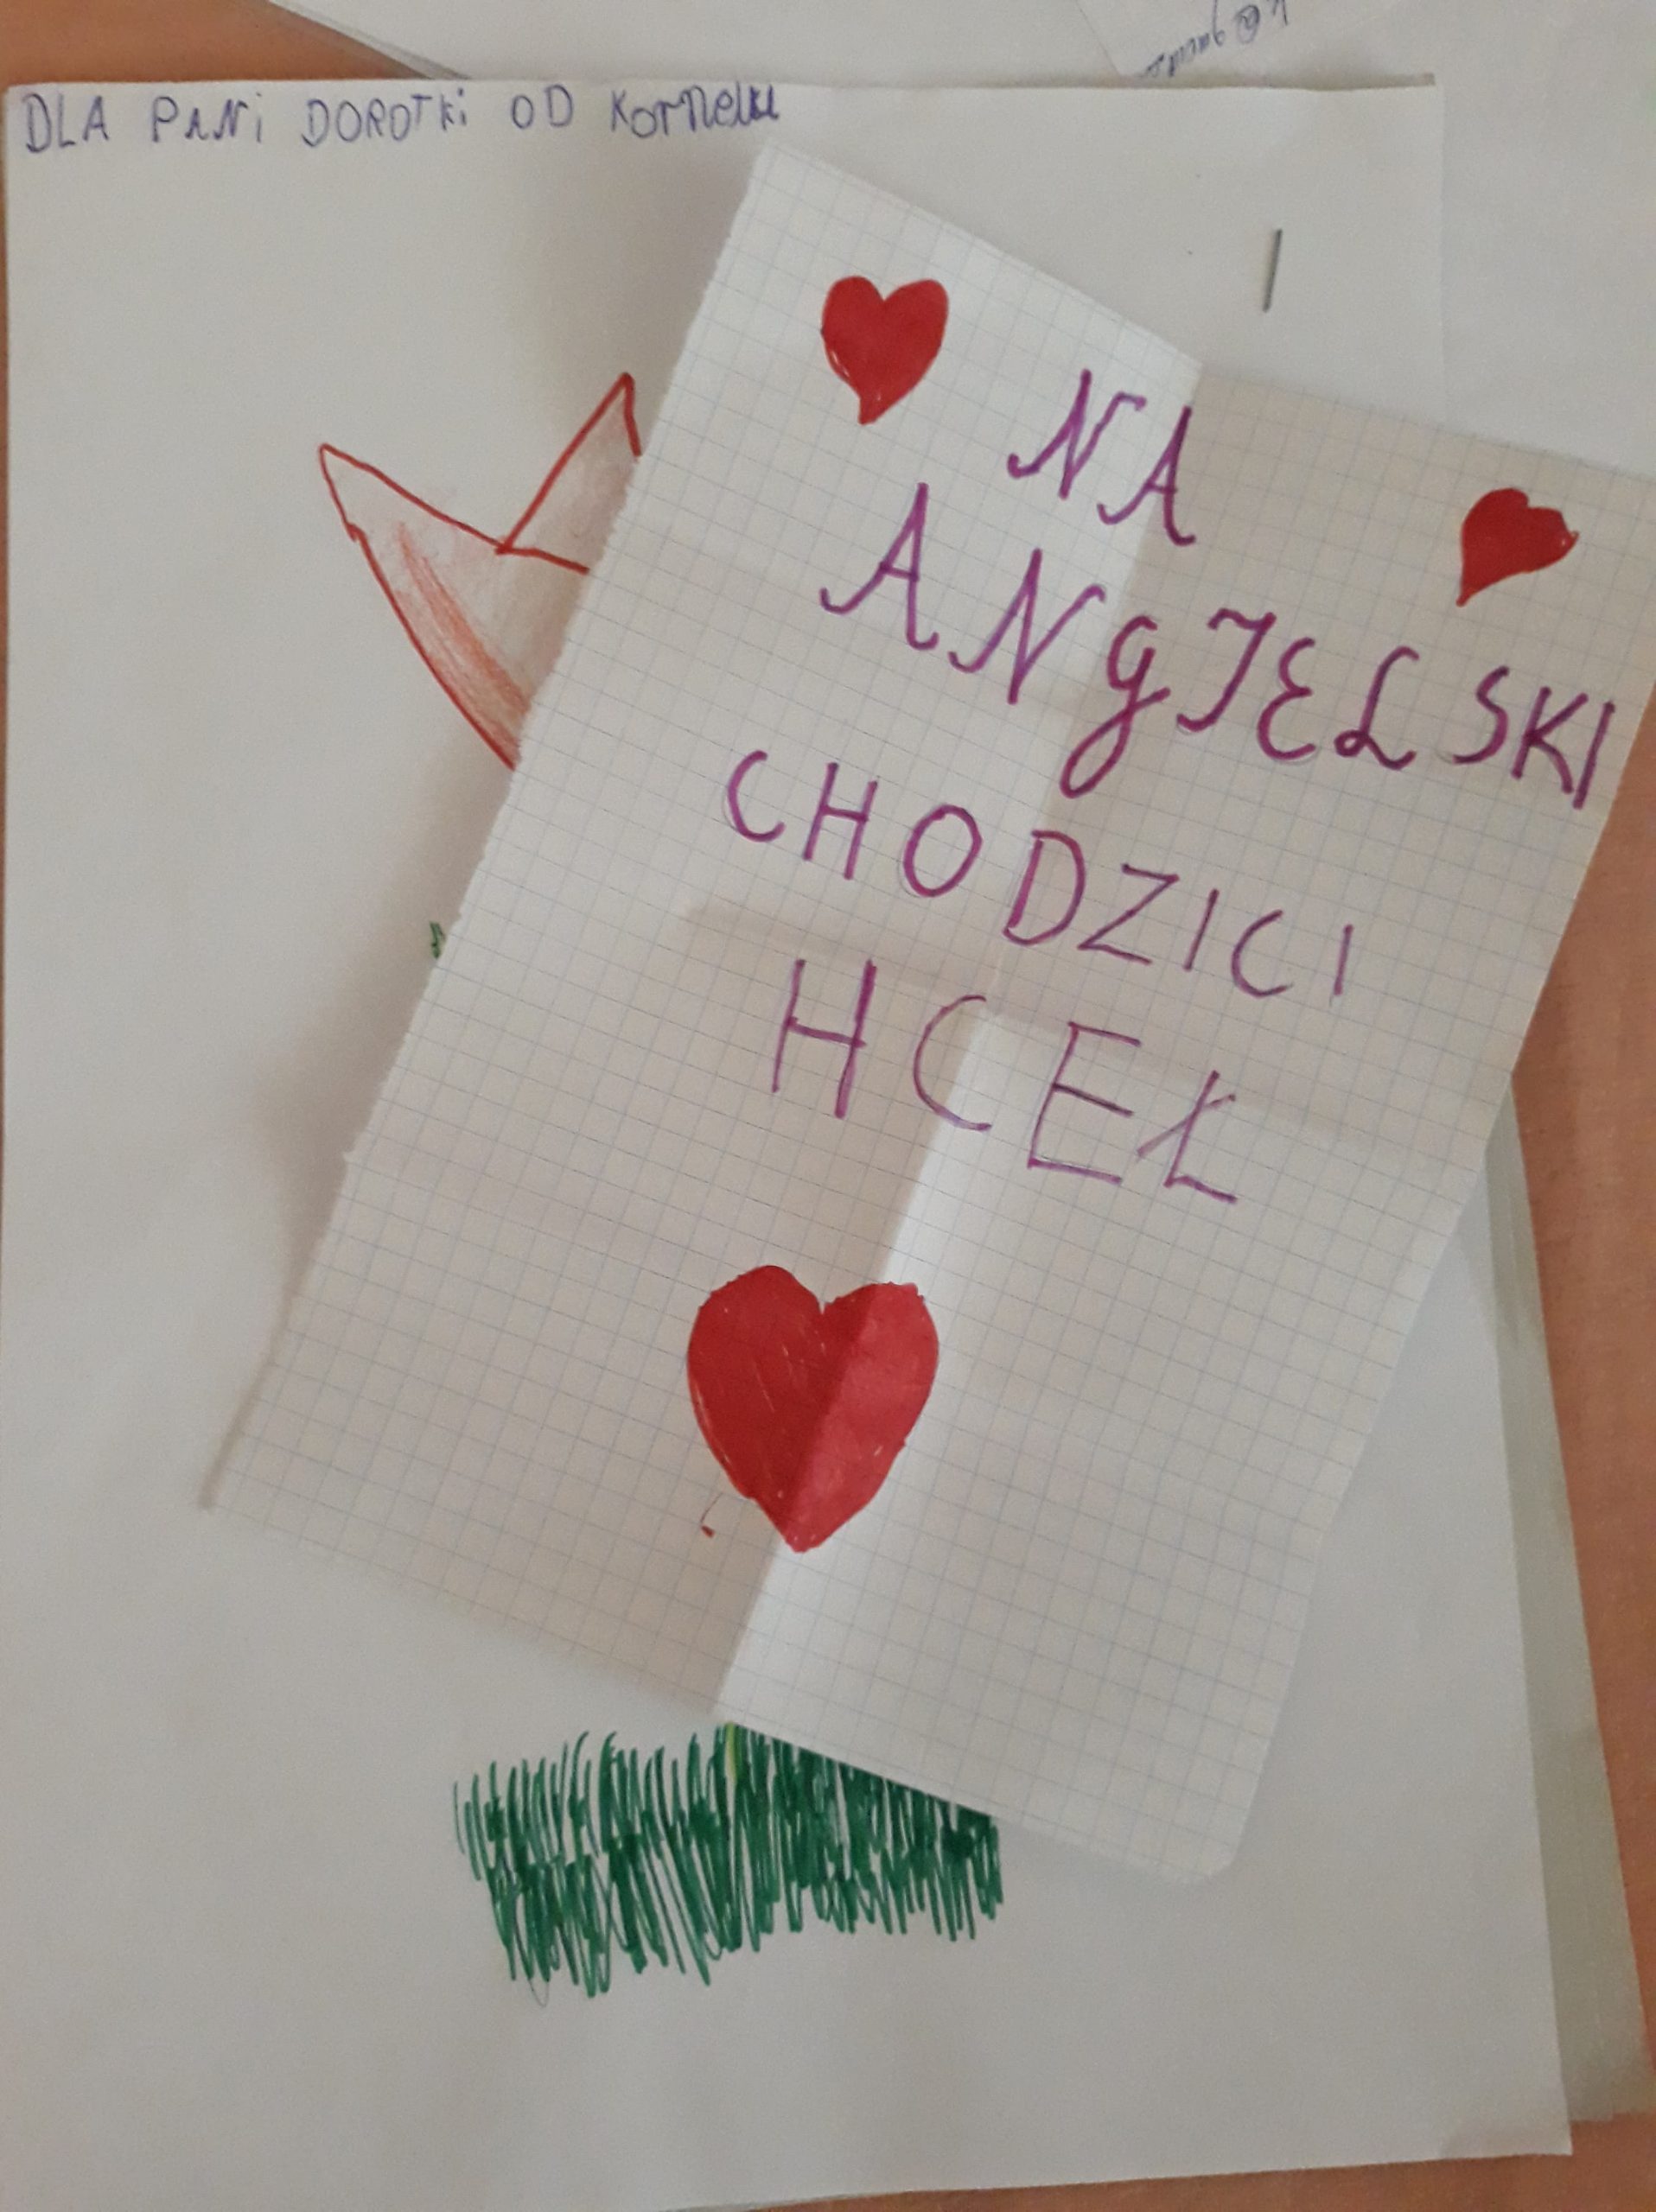 DLA PANi DOROTKi OD Kornelki
NA
ANGJELSKI
CHODZICI
HCEŁ